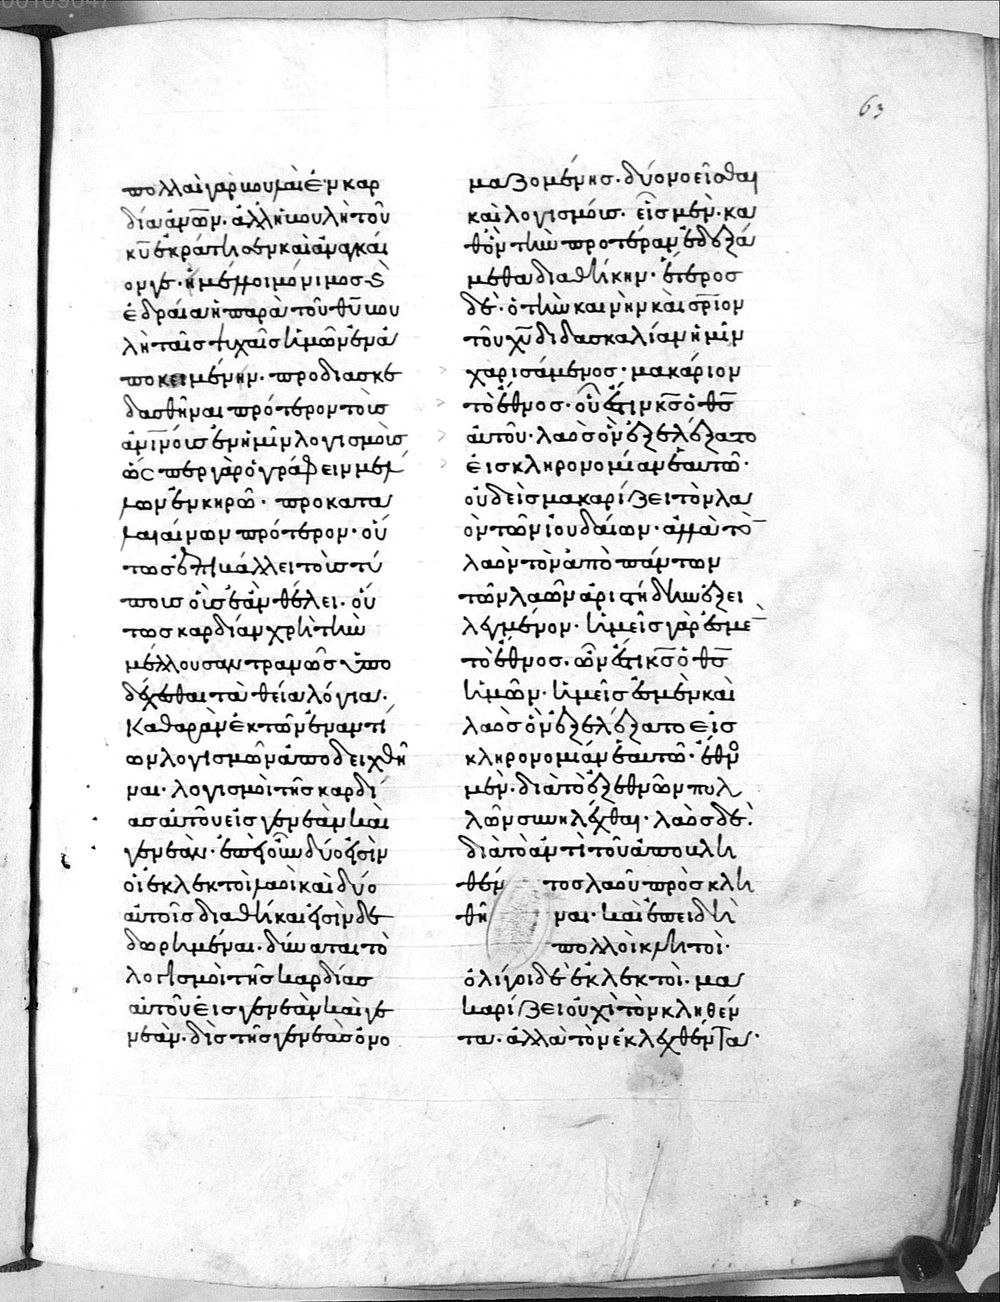 63
πολλαὶ γὰρ βουλαὶ ἐν καρ
δία ἀνων· ἀλλ' ἡ βουλὴ τοῦ
κυ ἐκράτησεν καὶ ἀναγκαί
ον γε· ἡ μέλλοι μόνιμος
ἑδραία ἡ παρὰ τοῦ θυ βου
λὴ ταῖς ψυχαῖς ἡμῶν ἐνα
ποκειμένην· προδιασκε
δασθῆναι πρότερον τοὺς
ἀμίνους ἐν ἡμῖν λογισμοὺς
ὥσπερ γὰρ ὁ γράφειν μέλ
λων ἐν κηρῶ· προκατα
λαιαίνων πρότερον· οὑ
τως ἐπιβάλλει τοὺς τύ
πους οἷς ἐὰν θέλει· οὑ
τως καρδίαν χρὴ τὴν
μέλλουσαν τρανῶς ὑπο
δέχεσθαι τὰ θεία λόγια·
καθαρὰν ἐκ τῶν ἐναντί
ων λογισμῶν ἀποδειχθῆ
ναι· λογισμοὶ τῆς καρδί
ας αὐτοῦ εἰς γενεὰν καὶ
γενεάν· ἐπεὶ οὖν δύο εἰσὶν
οἱ ἐκλεκτοὶ λαοὶ καὶ δύο
αὐτοῖς διαθῆκαι εἰσὶν δε
δωρημέναι· δύναται τὸ
λογισμοὶ τῆς καρδίας
αὐτοῦ εἰς γενεὰν καὶ γε
νεάν· δὶς τῆς γενεᾶς ὀνο
μαζομένης· δύο νοεῖσθαι
καὶ λογισμούς· εἷς μὲν· κα
θὸν τὴν προτέραν ἐδεξά
μεθα διαθήκην· ἕτερος
δὲ· ὁ τὴν καινὴν καὶ σριον
τοῦ χυ διδασκαλίαν ἡμῖν
χαρισάμενος· μακάριον
τὸ ἔθνος· οὗ ἐστιν κς ὁ θς
αὐτοῦ· λαὸς ὃν ἐξελέξατο
εἰς κληρονομίαν ἑαυτῶ·
οὐδεὶς μακαρίζει τὸν λα
ὸν τῶν ἰουδαίων· ἀλλὰ τὸ
λαὸν τὸν ἀπὸ πάντων
τῶν λαῶν ἀριστήδην ἐξει
λεγμένον· ἡμεῖς γάρ ἐσμε
τὸ ἔθνος· ὧν ἐστι κς ὁ θς
ἡμῶν· ἡμεῖς ἐσμὲν καὶ
λαὸς ὃν ἐξελέξατο εἰς
κληρονομίαν ἑαυτῶ· ἔθνο
μὲν· διὰ τὸ ἐξ ἐθνῶν πολ
λῶν συνηλέχθαι· λαὸς δέ·
διὰ τὸ ἀντὶ τοῦ ἀποκλη
θέν τος λαοῦ προσκλη
θῆ ναι· καὶ ἐπειδὴ
πολλοὶ κλητοὶ·
ὀλίγοι δὲ ἐκλεκτοὶ· μα
καρίζει οὐχὶ τὸν κληθέν
τα· ἀλλὰ τὸν ἐκλεχθέντα·